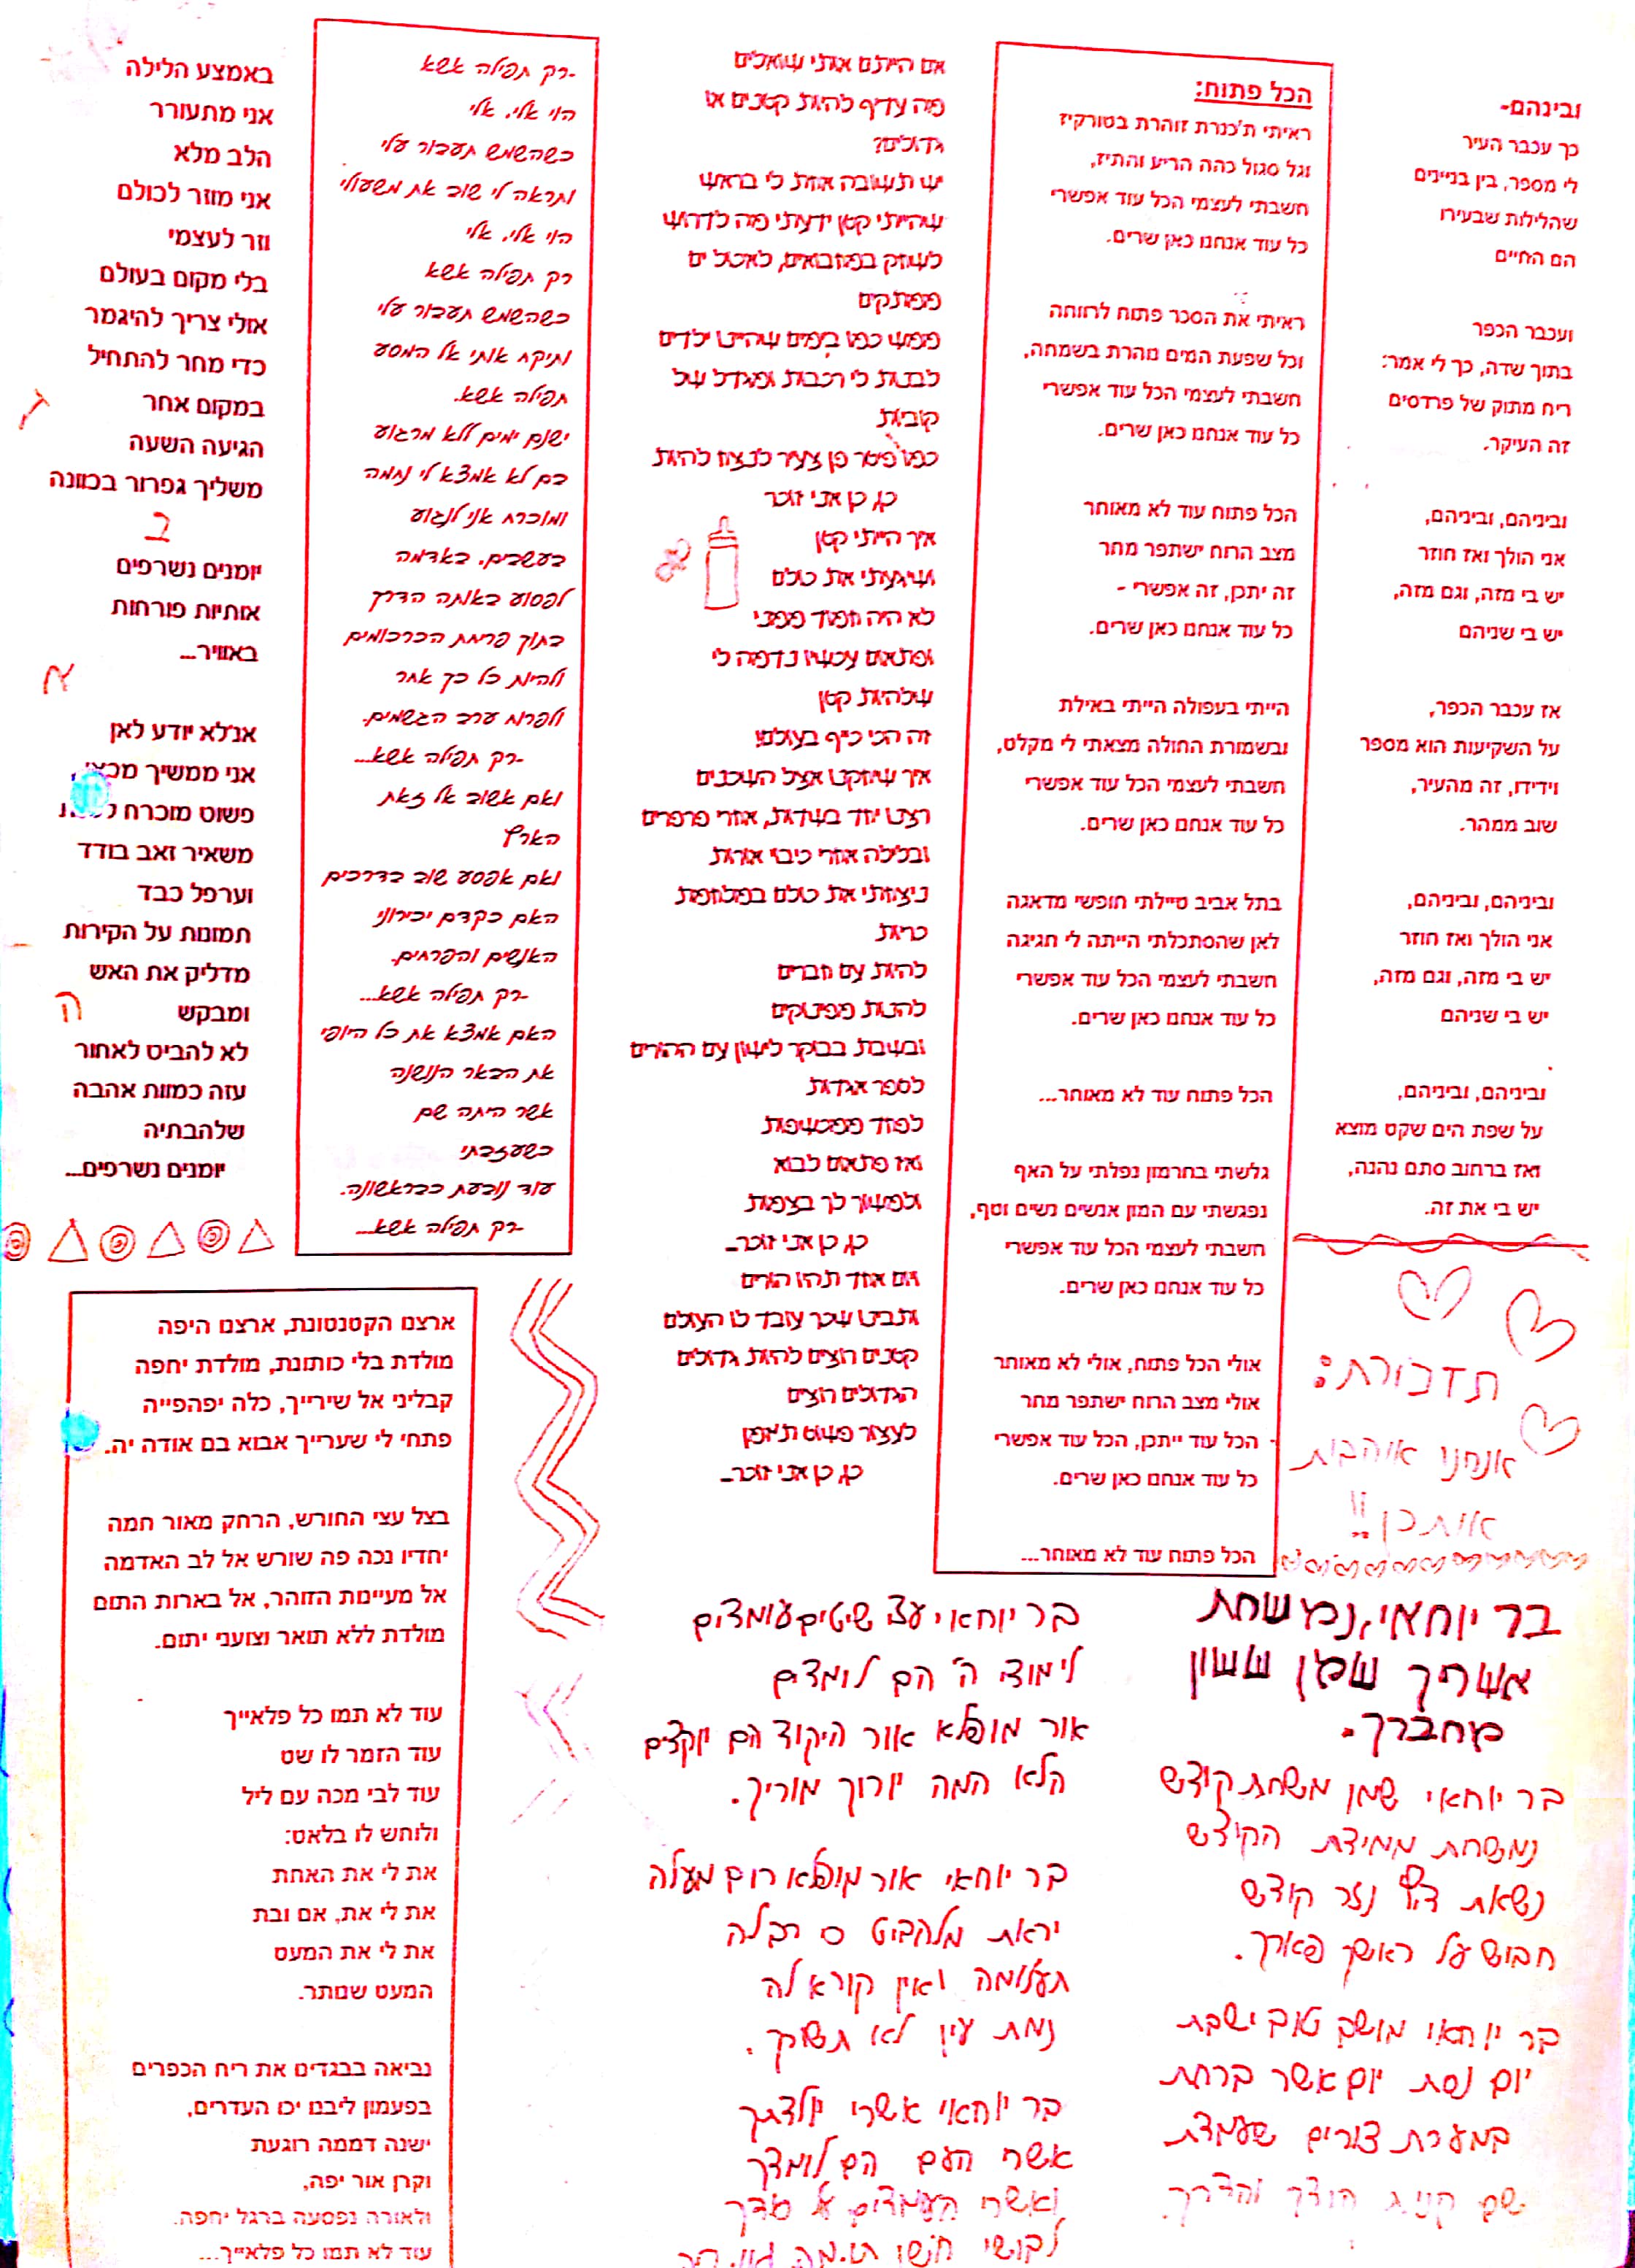 ובינהם-
כך עכבר העיר
לי מספר, בין בניינים
שהלילות שבעירו
הם החיים
ועכבר הכפר
בתוך שדה, כך לי אמר:
ריח מתוק של פרדסים
זה העיקר.
וביניהם, וביניהם,
אני הולך ואז חוזר
יש בי מזה, וגם מזה,
יש בי שניהם
אז עכבר הכפר,
על השקיעות הוא מספר
וידידו, זה מהעיר,
שוב ממהר.
וביניהם, וביניהם,
אני הולך ואז חוזר
יש בי מזה, וגם מזה,
יש בי שניהם
וביניהם, וביניהם,
על שפת הים שקט מוצא
ואז ברחוב סתם נהנה,
יש בי את זה.
תזכורת:
אנחנו אוהבות
אותכן!!
הכל פתוח:
ראיתי ת'כנרת זוהרת בטורקיז
וגל סגול כהה הריע והתיז,
חשבתי לעצמי הכל עוד אפשרי
כל עוד אנחנו כאן שרים.
ראיתי את הסכר פתוח לרווחה
וכל שפעת המים נוהרת בשמחה,
חשבתי לעצמי הכל עוד אפשרי
כל עוד אנחנו כאן שרים.
הכל פתוח עוד לא מאוחר
מצב הרוח ישתפר מחר
זה יתכן, זה אפשרי -
כל עוד אנחנו כאן שרים.
הייתי בעפולה הייתי באילת
ובשמורת החולה מצאתי לי מקלט,
חשבתי לעצמי הכל עוד אפשרי
כל עוד אנחנו כאן שרים.
בתל אביב טיילתי חופשי מדאגה
לאן שהסתכלתי הייתה לי חגיגה
חשבתי לעצמי הכל עוד אפשרי
כל עוד אנחנו כאן שרים.
הכל פתוח עוד לא מאוחר...
גלשתי בחרמון נפלתי על האף
נפגשתי עם המון אנשים נשים וטף,
חשבתי לעצמי הכל עוד אפשרי
כל עוד אנחנו כאן שרים.
אולי הכל פתוח, אולי לא מאוחר
אולי מצב הרוח ישתפר מחר
הכל עוד ייתכן, הכל עוד אפשרי
כל עוד אנחנו כאן שרים.
הכל פתוח עוד לא מאוחר...
אם הייתם אותי שואלים
מה עדיף להיות קטנים או
גדולים?
יש תשובה אחת לי בראש
שהייתי קטן ידעתי מה לדרוש
לשחק במחבואים, לאכול ים
ממתקים
ממש כמו בימים שהיינו ילדים
לבנות לי רכבות ומגדל של
קוביות
כמו פיטר פן צעיר לנצח להיות
כן, כן אני זוכר
איך הייתי קטן
ושיגעתי את כולם
לא היה חמוד ממני
ופתאום עכשיו נדמה לי
שלהיות קטן
זה הכי כייף בעולם!
איך שיחקנו אצל השכנים
רצנו יחד בשדות, אחרי פרפרים
ובלילה אחרי כיבוי אורות
ניצחתי את כולם במלחמת
כריות
להיות עם חברים
להנות מפינוקים
ובשבת בבוקר לישון עם ההורים
לספר אגדות
לפחד ממכשפות
ואז פתאום לבוא
ולמשוך לך בצמות
כן, כן אני זוכר...
יום אחד תהיו הורים
ותבינו שכך עובד לו העולם
קטנים רוצים להיות גדולים
הגדולים רוצים
לעצור פשוט ת'זמן
כן, כן אני זוכר...
-רק תפילה אשא
הוי אלי, אלי
כשהשמש תעבור עלי
ותראה לי שוב את משעולי
הוי אלי, אלי
רק תפילה אשא
כשהשמש תעבור עלי
ותיקח אותי אל המסע
תפילה אשא.
ישנם ימים ללא מרגוע
בם לא אמצא לי נחמה
ומוכרח אני לנגוע
בעשבים, באדמה
לפסוע באותה הדרך
בתוך פריחת הכרכומים
ולהיות כל כך אחר
ולפרוח ערב הגשמים.
-רק תפילה אשא...
ואם אשוב אל זאת
הארץ
ואם אפסע שוב בדרכים
האם כקדם יכירוני
האנשים והפרחים.
-רק תפילה אשא...
האם אמצא את כל היופי
את הבאר הנושנה
אשר היתה שם
כשעזבתי
עוד נובעת כבראשונה.
-רק תפילה אשא...
באמצע הלילה
אני מתעורר
הלב מלא
אני מוזר לכולם
וזר לעצמי
בלי מקום בעולם
אולי צריך להיגמר
כדי מחר להתחיל
במקום אחר
הגיעה השעה
משליך גפרור בכוונה
ב
יומנים נשרפים
אותיות פורחות
באוויר...
א
אנ'לא יודע לאן
אני ממשיך
פשוט מוכרח
משאיר זאב בודד
וערפל כבד
תמונות על הקירות
מדליק את האש
ומבקש
ה
לא להביט לאחור
עזה כמוות אהבה
שלהבתיה
יומנים נשרפים...
בר יוחאי, נמשחת
אשריך שמן ששון
מחברך.
בר יוחאי שמן משחת קודש
נמשחת ממידת הקודש
נשאת ציץ נזר קודש
חבוש על ראשך פארך.
בר יוחאי מושב טוב ישבת
יום נסת יום אשר ברחת
במערת צורים שעמדת
שם קנית הודך והדרך.
בר יוחאי עצי שיטים עומדים
לימודי ה' הם לומדים
אור מופלא אור היקוד הם יוקדים
הלא המה יורוך מוריך.
בר יוחאי אור מופלא רום מעלה
יראת מלהביט כי רב לה
תעלומה ואין קורא לה
נמת עין לא תשורך.
בר יוחאי אשרי יולדתך
אשרי העם הם לומדך
ואשרי העומדים על סודך
לבושי חושן
ארצנו הקטנטונת, ארצנו היפה
מולדת בלי כותונת, מולדת יחפה
קבליני אל שירייך, כלה יפהפייה
פתחי לי שערייך אבוא בם אודה יה.
בצל עצי החורש, הרחק מאור חמה
יחדיו נכה פה שורש אל לב האדמה
אל מעיינות הזוהר, אל בארות התום
מולדת ללא תואר וצועני יתום.
עוד לא תמו כל פלאייך
עוד הזמר לו שט
עוד לבי מכה עם ליל
ולוחש לו בלאט:
את לי את האחת
את לי את, אם ובת
את לי את המעט
המעט שנותר.
נביאה בבגדים את ריח הכפרים
בפעמון ליבנו יכו העדרים,
ישנה דממה רוגעת
וקרן אור יפה,
ולאורה נפסעה ברגל יחפה.
עוד לא תמו כל פלאייך...